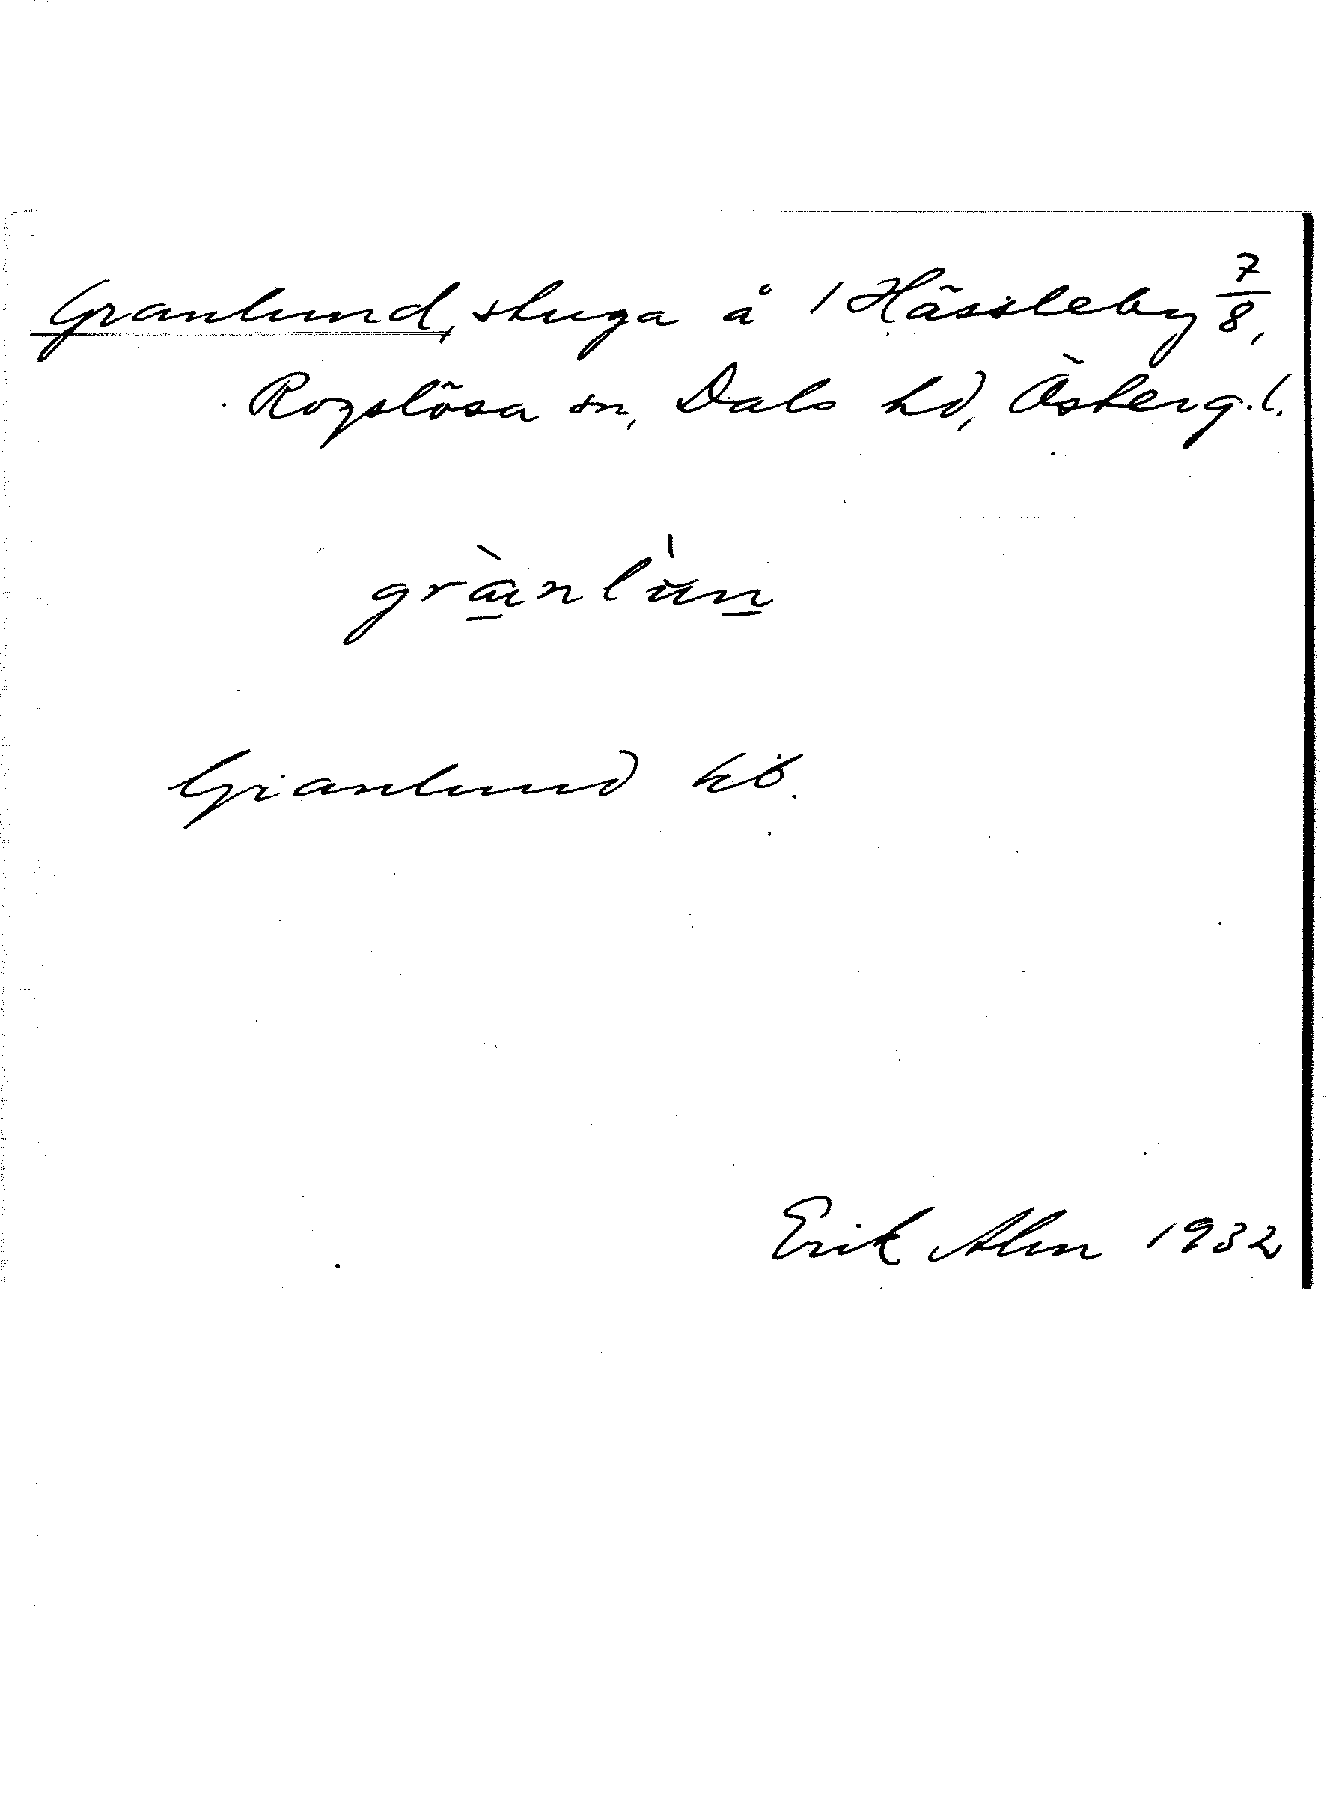 Granlund, stuga å 1 Hässleby 7/8,
Rogslösa sn, Dals hd, Österg. l.
grànlun
Granlund kö.
Erik Alm 1932